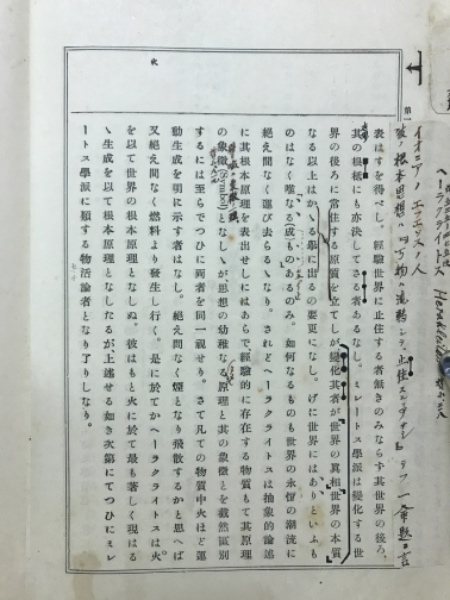 火
第一
イオニアノエフェソスノ人
ヘーラクライトス Herakleitos
表はすを得べし、經驗世界に止住する者無きのみならず其世界の後ろ、
其の根柢にも亦決してさる者あるなし。ミレートス學派は變化する世
界の後ろに常住する原質を立てしが變化其者が世界の眞相世界の本質
なる以上はかゝる擧に出るの要更になし。げに世界にはありといふも
のはなく唯なる(成)ものあるのみ。如何なるものも世界の永恆の潮流に
絕え間なく運び去らるゝなり。されどヘーラクライトスは抽象的論述
に其根本原理を表出せしにはあらで、經驗的に存在する物質もて其原理
の象徵(Symbol)となしゝが、思想の幼稚なる、原理と其の象徵とを截然區別
するには至らでつひに兩者を同一視せり。さて凡ての物質中火ほど運
動生成を明に示す者はなし。絕え間なく煙となり飛散するかと思へば
又絕え間なく燃料より發生し行く。是に於てかヘーラクライトスは火
を以て世界の根本原理となしぬ。彼はもと火に於て最も著しく現はる
ゝ生成を以て根本原理となしたるが、上述せる如き次第にてつひにミレ
ートス學派に類する物活論者となり了りしなり。